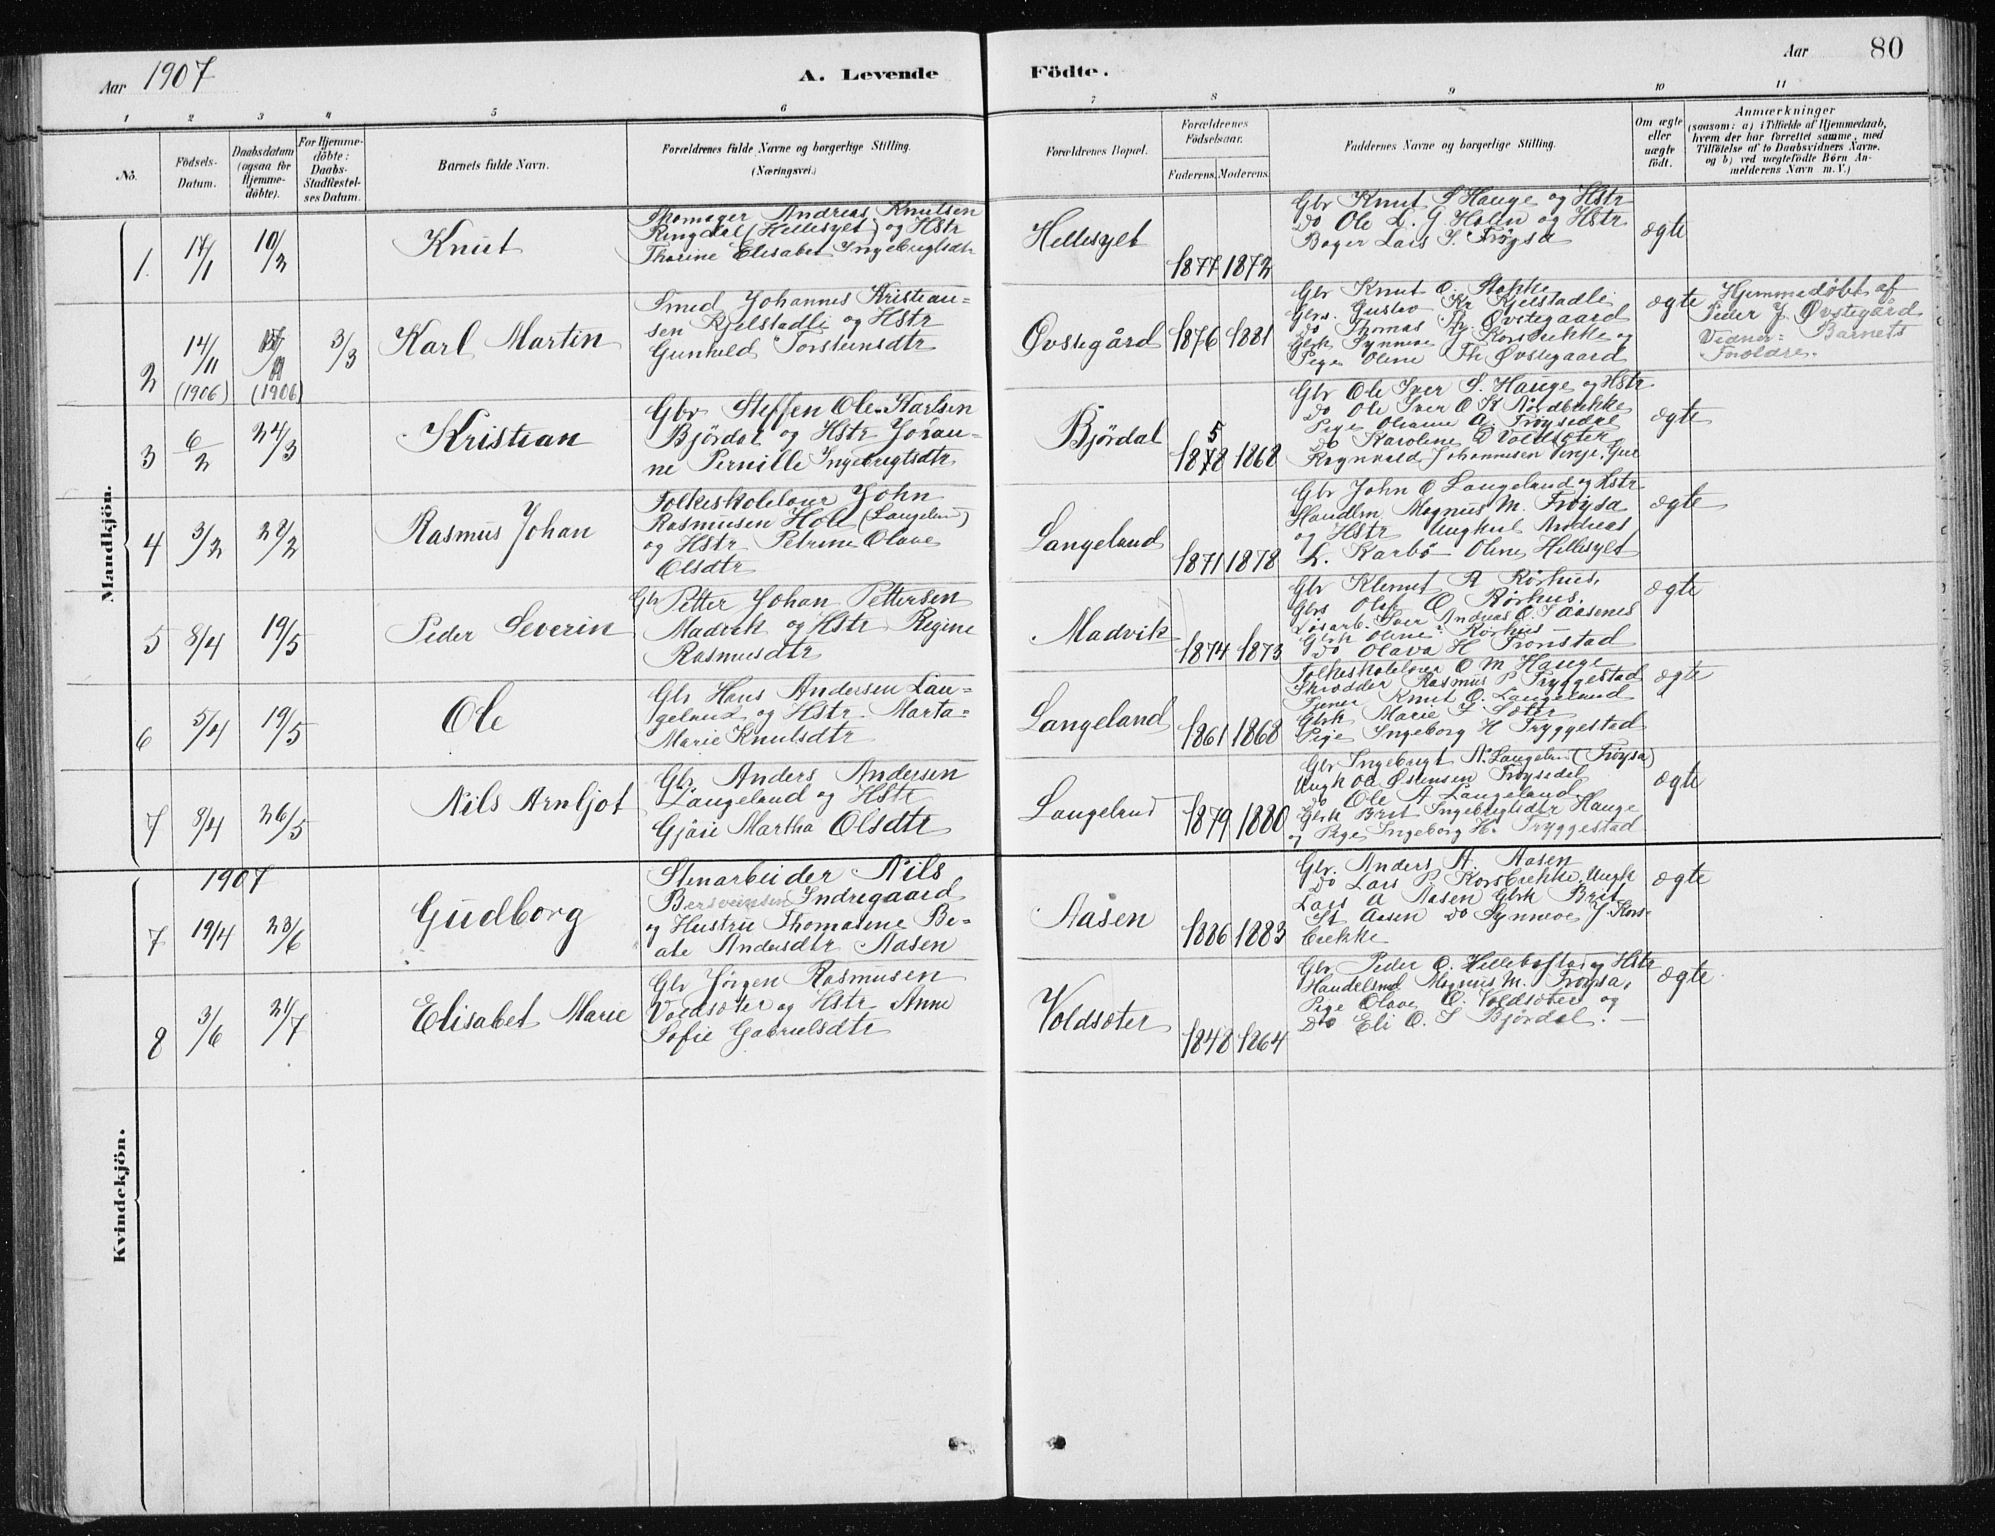 Aar 1907
A. Levende
Födte.
Aar
80
1 2 3 4 5 6 7 8 9 10 11
No.
Födsels-
Datum.
Daabsdatum
(ogsaa for
Hjemme-
døbte).
For Hjemme-
döbte:
Daabs-
Stadfæstel-
ses Datum.
Barnets fulde Navn.
Forældrenes fulde Navne og borgerlige Stilling.
(Næringsvei.)
Forældrenes Bopæl.
Forældrenes
Födselsaar.
Faderens. Moderens.
Faddernes Navne og borgerlige Stilling.
Om ægte
eller
uægte
födt.
Anmærkninger
(saasom: a) i Tilfælde af Hjemmedaab,
hvem der har forrettet samme, med
Tilföielse af to Daabsvidners Navne,
og b) ved uægtefödte Børn An-
melderens Navn m. V.)
Mandkjön.
1. 17/1 10/2
Knut
Skomager Andreas Knutsen
Ringdal (Hellesylt) og Hstr
Thorine Elisabet Ingebrigtsdtr
Hellesylt
1877 1872
Gbr Knut S Hauge og Hstr
Do Ole L. G. Holen og Hstr
Bager Lars I. Frøysa
ægte
2 14/11 (1906)
(1906)
3/3
Karl Martin
Smed Johannes Kristian-
sen Kjelstadli og Hstr
Gunhild Torsteinsdtr
Øvstegård
1876 1881
Gbr Knut O. Stokke
Gbrs. Gustav Kr Kjelstadli
do Thomas Th. Øvstegaard
Gbrk Synneve J. Korsbrekke og
Pige Oline Th Øvstegaard
ægte
Hjemmedøbt af
Peder J. Øvstegård
Vidner: Barnets
Foreldre.
3 6/2 24/3
Kristian
Gbr Steffen Ole Karlsen
Björdal og Hstr Joran-
ne Pernille Ingebrigtsdtr
Björdal
5
1878 1868
Gbr Ole Iver S. Hauge og Hstr
Do Ole Iver O St Nordbrekke
Pige Oliane A. Frøysedal
do Karolene O Voldsæter
Ragnvald Johannesen
ægte
4 3/2 28/2
Rasmus Johan
Folkeskolelærer John
Rasmusen Hole (Langeland)
og Hstr Petrine Olave
Olsdtr
Langeland
1871 1878
Gbr John O Langeland og Hstr
Handlm. Magnus M. Frøysa
og Hstr Ungkarl Andreas
L. Karbø Oline Hellesylt
ægte
5 8/4 19/5
Peder Severin
Gbr Petter Johan Pettersen
Madvik og Hstr Regine
Rasmusdtr
Madvik
1874 1873
Gbr Klemet A Rørhus,
Gbrs Olaf O Rørhus,
Løsarb. Iver Andreas O. Aasenes
Gbrk Oline Rørhus
Do Olava H Tronstad
ægte
6 5/4 19/5
Ole
Gbr Hans Andersen Lan-
geland og Hstr Marta
Marie Knutsdtr
Langeland
1861 1868
Folkeskolelærer O M Hauge
Skrædder Rasmus P Tryggestad
Tjener Knut O. Langeland
Gbrk Marie S. Sæter
Pige Ingeborg H Tryggestad
ægte
7 8/4 26/5
Nils Arnljot
Gbr Anders Andersen
Langeland og Hstr
Gjøsie Martha Olsdtr
Langeland
1879 1880
Gbr Ingebrigt A. Langeland (Frøysa)
Ungk Ole Østensen Frøysedal
do Ole A Langeland
Gbrk Brit Ingebrigtsdtr Hauge
og Pige Ingeborg H. Tryggestad
ægte
Kvindekjön.
1907
7 19/4 23/6
Gudborg
Stenarbeider Nils
Bersveinsen Indregaard
og Hustru Thomasine Be-
ate Andersdtr Aasen
Aasen
1886 1883
Gbr. Anders A. Aasen
Do Lars P. Korsbrekke, Ungk
Lars A Aasen Gbrk Brit
St Aasen do Synneve J. Kors-
brekke
ægte
8 3/6 21/7
Elisabet Marie
Gbr Jörgen Rasmusen
Voldsæter og Hstr Anne
Sofie Gabrielsdtr
Voldsæter
1848 1864
Gbr Peder O. Hellebostad og Hstr
Handelsmd Magnus M. Frøysa,
Pige Olave O. Voldsæter og
Do Eli O. S Bjørdal.
ægte